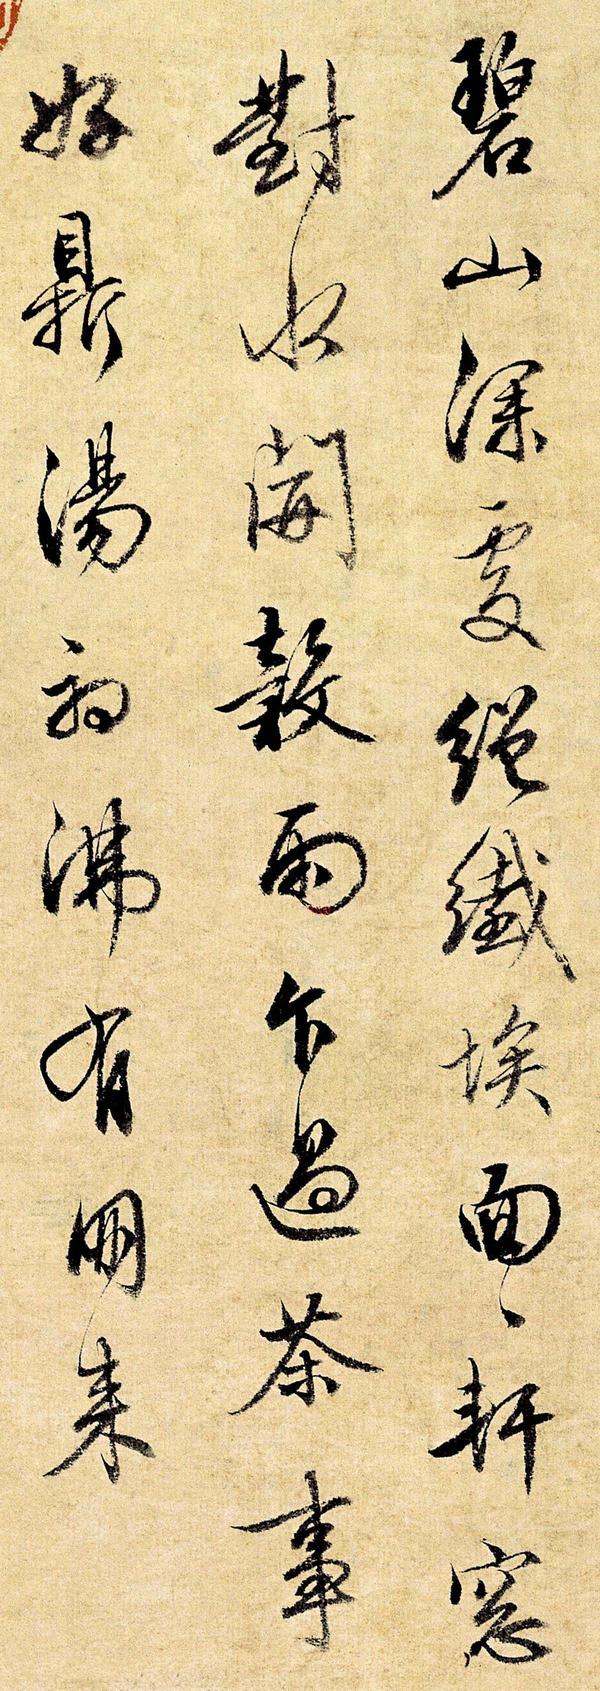 碧山深處絕纖埃面〻軒窓
對水開穀雨乍過茶事
好鼎湯初沸有朋来